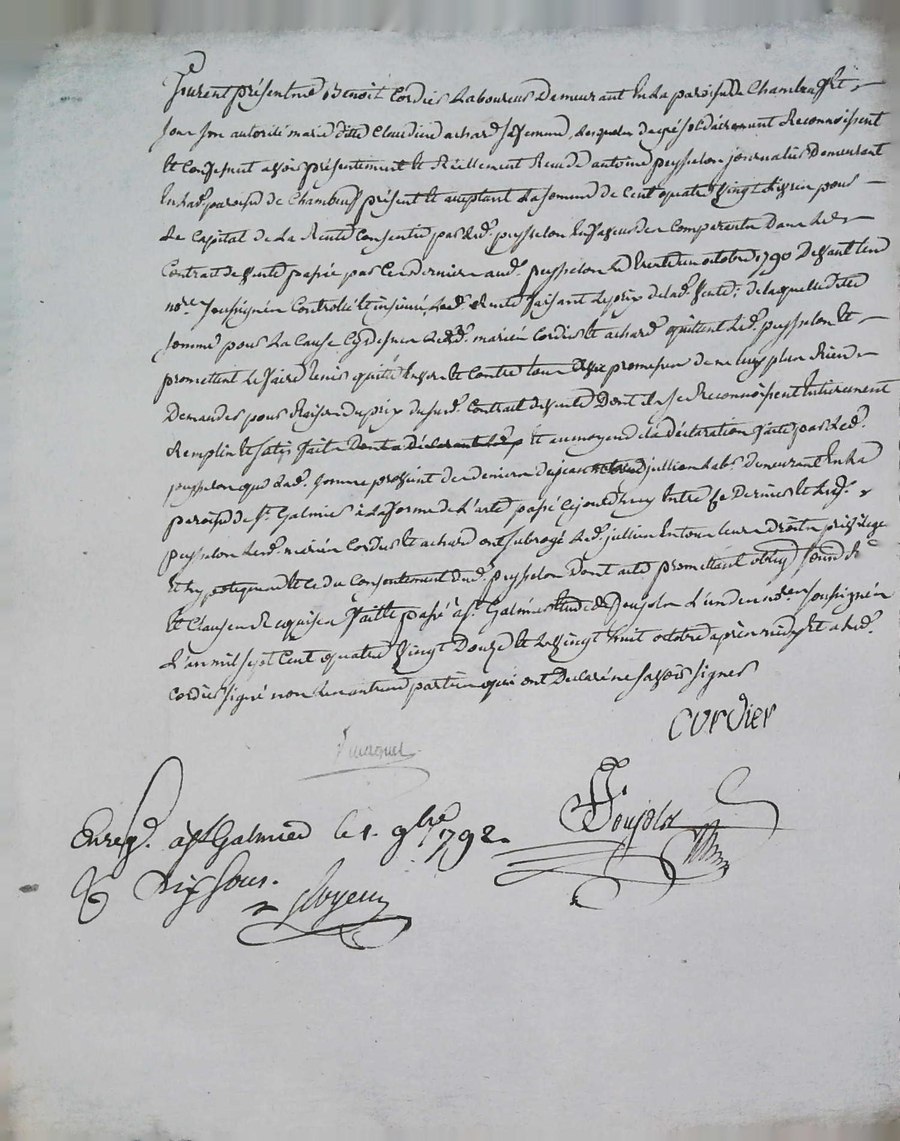 furent présents Benoit Cordier Laboureur Demeurant En La paroisse de Chambeuf Et
sous son autorité maritalle Claudine achard sa femme, Lesquels de gré solidairement Reconnoissent
Et Confessent avoir présentement Et Réellement Reçu de antoine peysselon journalier Demeurant
En lad. paroisse de Chambeuf présent Et acceptant La somme de Cent quatre Vingt dix pour
Le Capital de La Rente Consentie par Led. peysselon En faveur des Comparants Dans Le
Contrat de Vente passé par Ces derniers aud. peysselon Le trente un octobre 1790 Devant L'un
nores soussignés Controllé Et insinué Lad. Rente faisant Le prix de lad. Vente; de laquelle ditte
somme pour La Cause Cy dessus Lesd. mariés Cordier Et achard quittent Led. peysselon Et
promettent Le faire tenir quitte Envers Et Contre tous avec promesse de ne luy plus Rien
Demander pour Raison du prix dusd. Contrat de Vente Dont ils se Reconnoissent Entierement
Remplis Et satisfaits Et au moyen de la Déclaration faite par Led.
peysselon que Lad. somme provient des deniers de jean jullien Lab. Demeurant En La
paroisse de St. Galmier à la forme de L'acte passé Cejourdhuy Entre Ce Dernier Et Led.
peysselon Lesd. mariés Cordier Et achard ont subrogé Led. jullien En tous leurs Droits privilege
Et hypoteques Et Ce du Consentement dud. peysselon Dont acte promettant obligé soum. &
Et Clauses Requises faitte passé à St. Galmier Etude de Poujolas L'un des nores soussignés
L'an mil sept Cent quatre Vingt Douze Et Le Vingt huit octobre après midy Et a Led.
Cordier signé non Les autres parties qui ont Declaré ne savoir signer
Cordier
Enregé. à St Galmier le 1. 9bre 1792.
R dix sous.